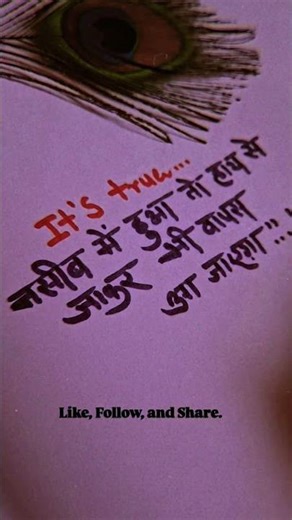 It's true...
नसीब में हुआ तो हाथ से
जाकर भी वापस
आ जाएगा"..!
Like, Follow, and Share.